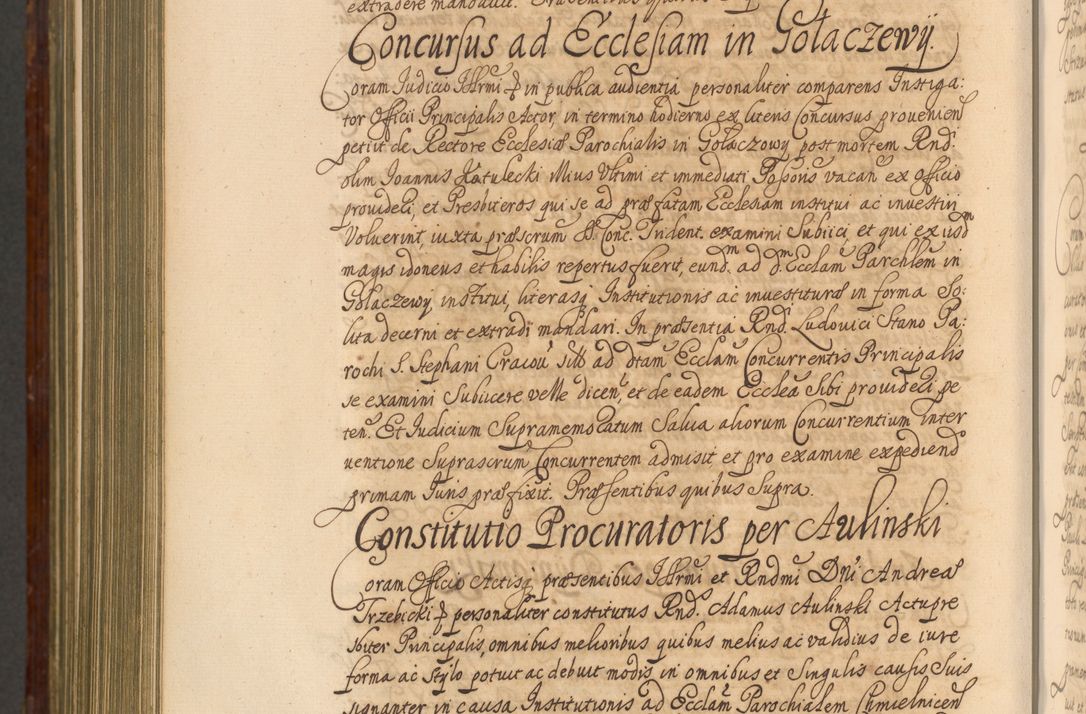 extradere mandavit.
Concursus ad Ecclesiam in Gołaczewÿ.
Coram Iudicio Illrmi & in publica audientia personaliter comparens Instiga:
tor Officii Principalis Actor, in termino hodierno ex literis Concursus provenien
petiit de Rectore Ecclesiæ Parochialis in Gołaczowy post mortem Rnd:
olim Joannis Xatulecki illius Ultimi et immediati Possoris vacan ex officio
provideri, et Presbiteros qui se ad præfatam Ecclesiam institui ac investiri
Voluerint, iuxta præscrum S. Conc. Trident. examini Subiici, et qui ex iisdm
magis idoneus et habilis repertus fuerit, eundm ad dm Ecclam Parchlem in
Gołaczewy institui, literasq Institutionis ac investituræ in forma So:
lita decerni et extradi mandari. In præsentia Rnd. Ludovici Stano Pa:
rochi S. Stephani Cracov sibi ad dtam Ecclam Concurrentis Principalis
se examini Subiicere velle dicen, et de eadem Ecclea Sibi provideri pe
ten. Et Iudicium Supramemoratum Salva aliorum Concurrentium inter
ventione Suprascrum Concurrentem admisit et pro examine expediend
primam Iuris præfixit. Præsentibus quibus Supra.
Constitutio Procuratoris per Aulinski
Coram Officio Actisq præsentibus Illrmi et Rndmi Dni Andreæ
Trzebicki & personaliter constitutus Rnd. Adamus Aulinski Actu pre
sbiter Principalis, omnibus melioribus quibus melius ac validius de iure
forma ac stylo potuit ac debuit modis, in omnibus et Singulis causis Suis
signanter in causa Institutionis ad Ecclam Parochialem Chmielnicen